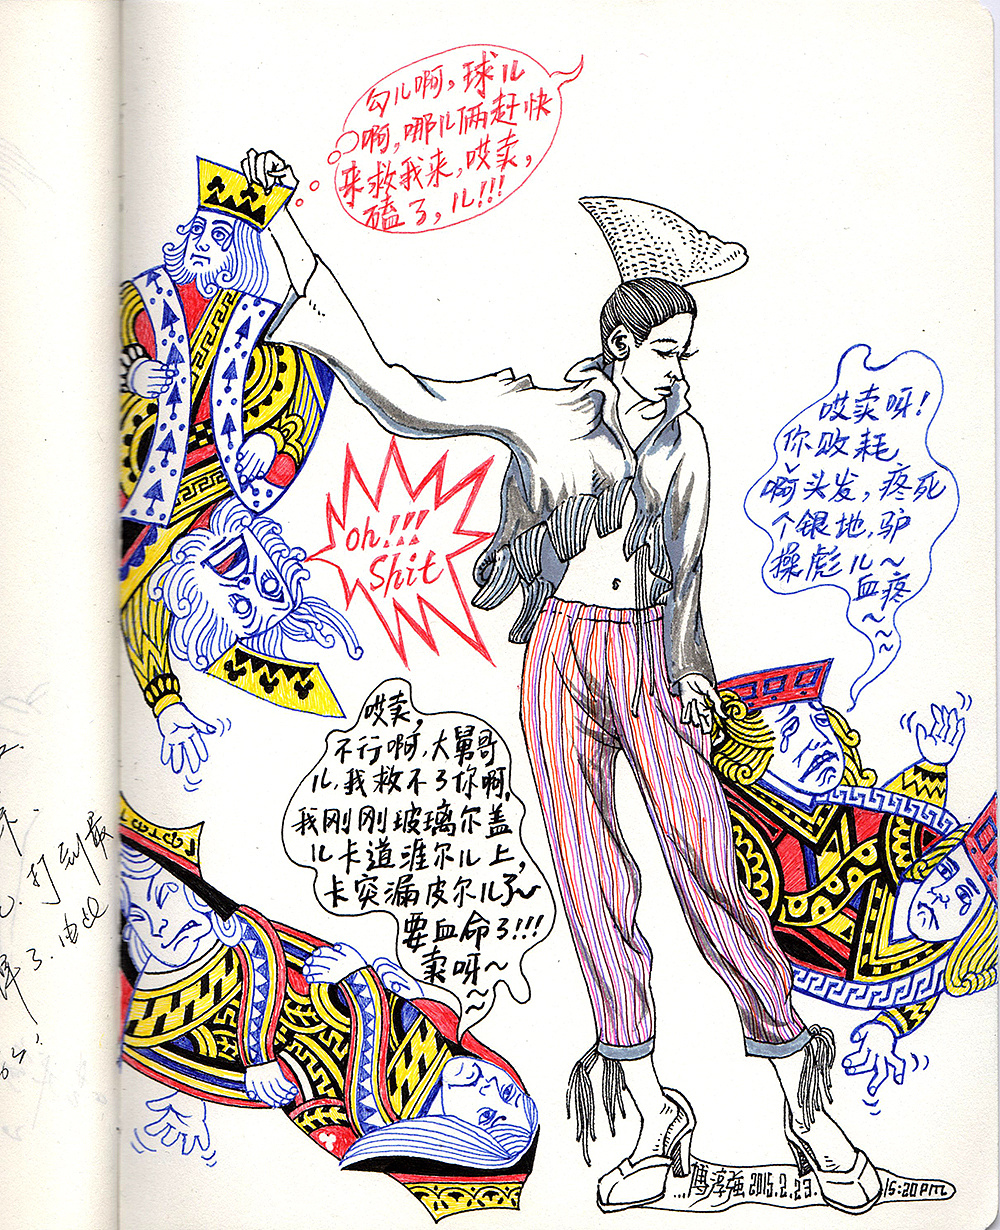 勾儿啊,球儿
啊,哪儿俩赶快
来救我来,哎卖,
磕了,儿!!!
哎卖呀!
你败耗
啊头发,疼死
个银地,驴
操彪儿~
血疼
~~~
Oh!!!
Shit
哎卖,
不行啊,大舅哥
儿,我救不了你啊,
我刚刚玻璃尔盖
儿卡道涯尔儿上,
卡突漏皮尔儿了~
要血命了!!!
卖呀~
~~
打到最
了.
...傅淳强 2015.2.23.
15:20pm